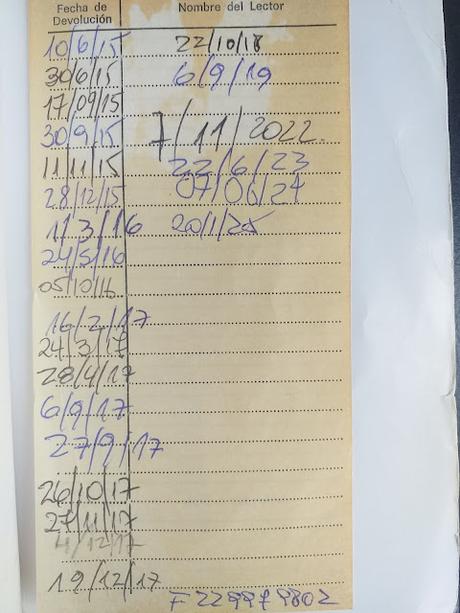 Fecha de Devolución
Nombre del Lector
10/6/15
30/6/15
17/09/15
30/9/15
11/11/15
28/12/15
1/3/16
24/5/16
05/10/16
16/2/17
24/3/17
28/4/17
6/9/17
27/9/17
26/10/17
27/11/17
4/12/17
19/12/17
22/10/18
6/9/19
7/11/2022.
22/6/23
07/06/24
20/1/25